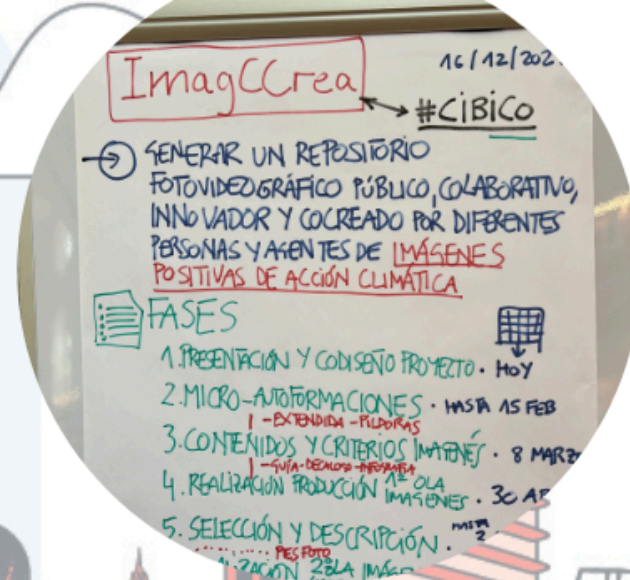 ImagCCrea
16/12/202
#CiBiCo
GENERAR UN REPOSITORIO
FOTOVIDEOGRÁFICO PÚBLICO, COLABORATIVO,
INNOVADOR Y COCREADO POR DIFERENTES
PERSONAS Y AGENTES DE IMÁGENES
POSITIVAS DE ACCIÓN CLIMÁTICA
FASES
1. PRESENTACIÓN Y CODISEÑO PROYECTO · HOY
2. MICRO-AUTOFORMACIONES · HASTA 15 FEB
-EXTENDIDA -PILDORAS
3. CONTENIDOS Y CRITERIOS IMÁGENES · 8 MARZ
-GUÍA-DECALOGO-INFOGRAFIA
4. REALIZACIÓN PRODUCCIÓN 1ª OLA IMÁGENES · 30 AB
5. SELECCIÓN Y DESCRIPCIÓN · HASTA 2
PES FOTO
2ª OLA